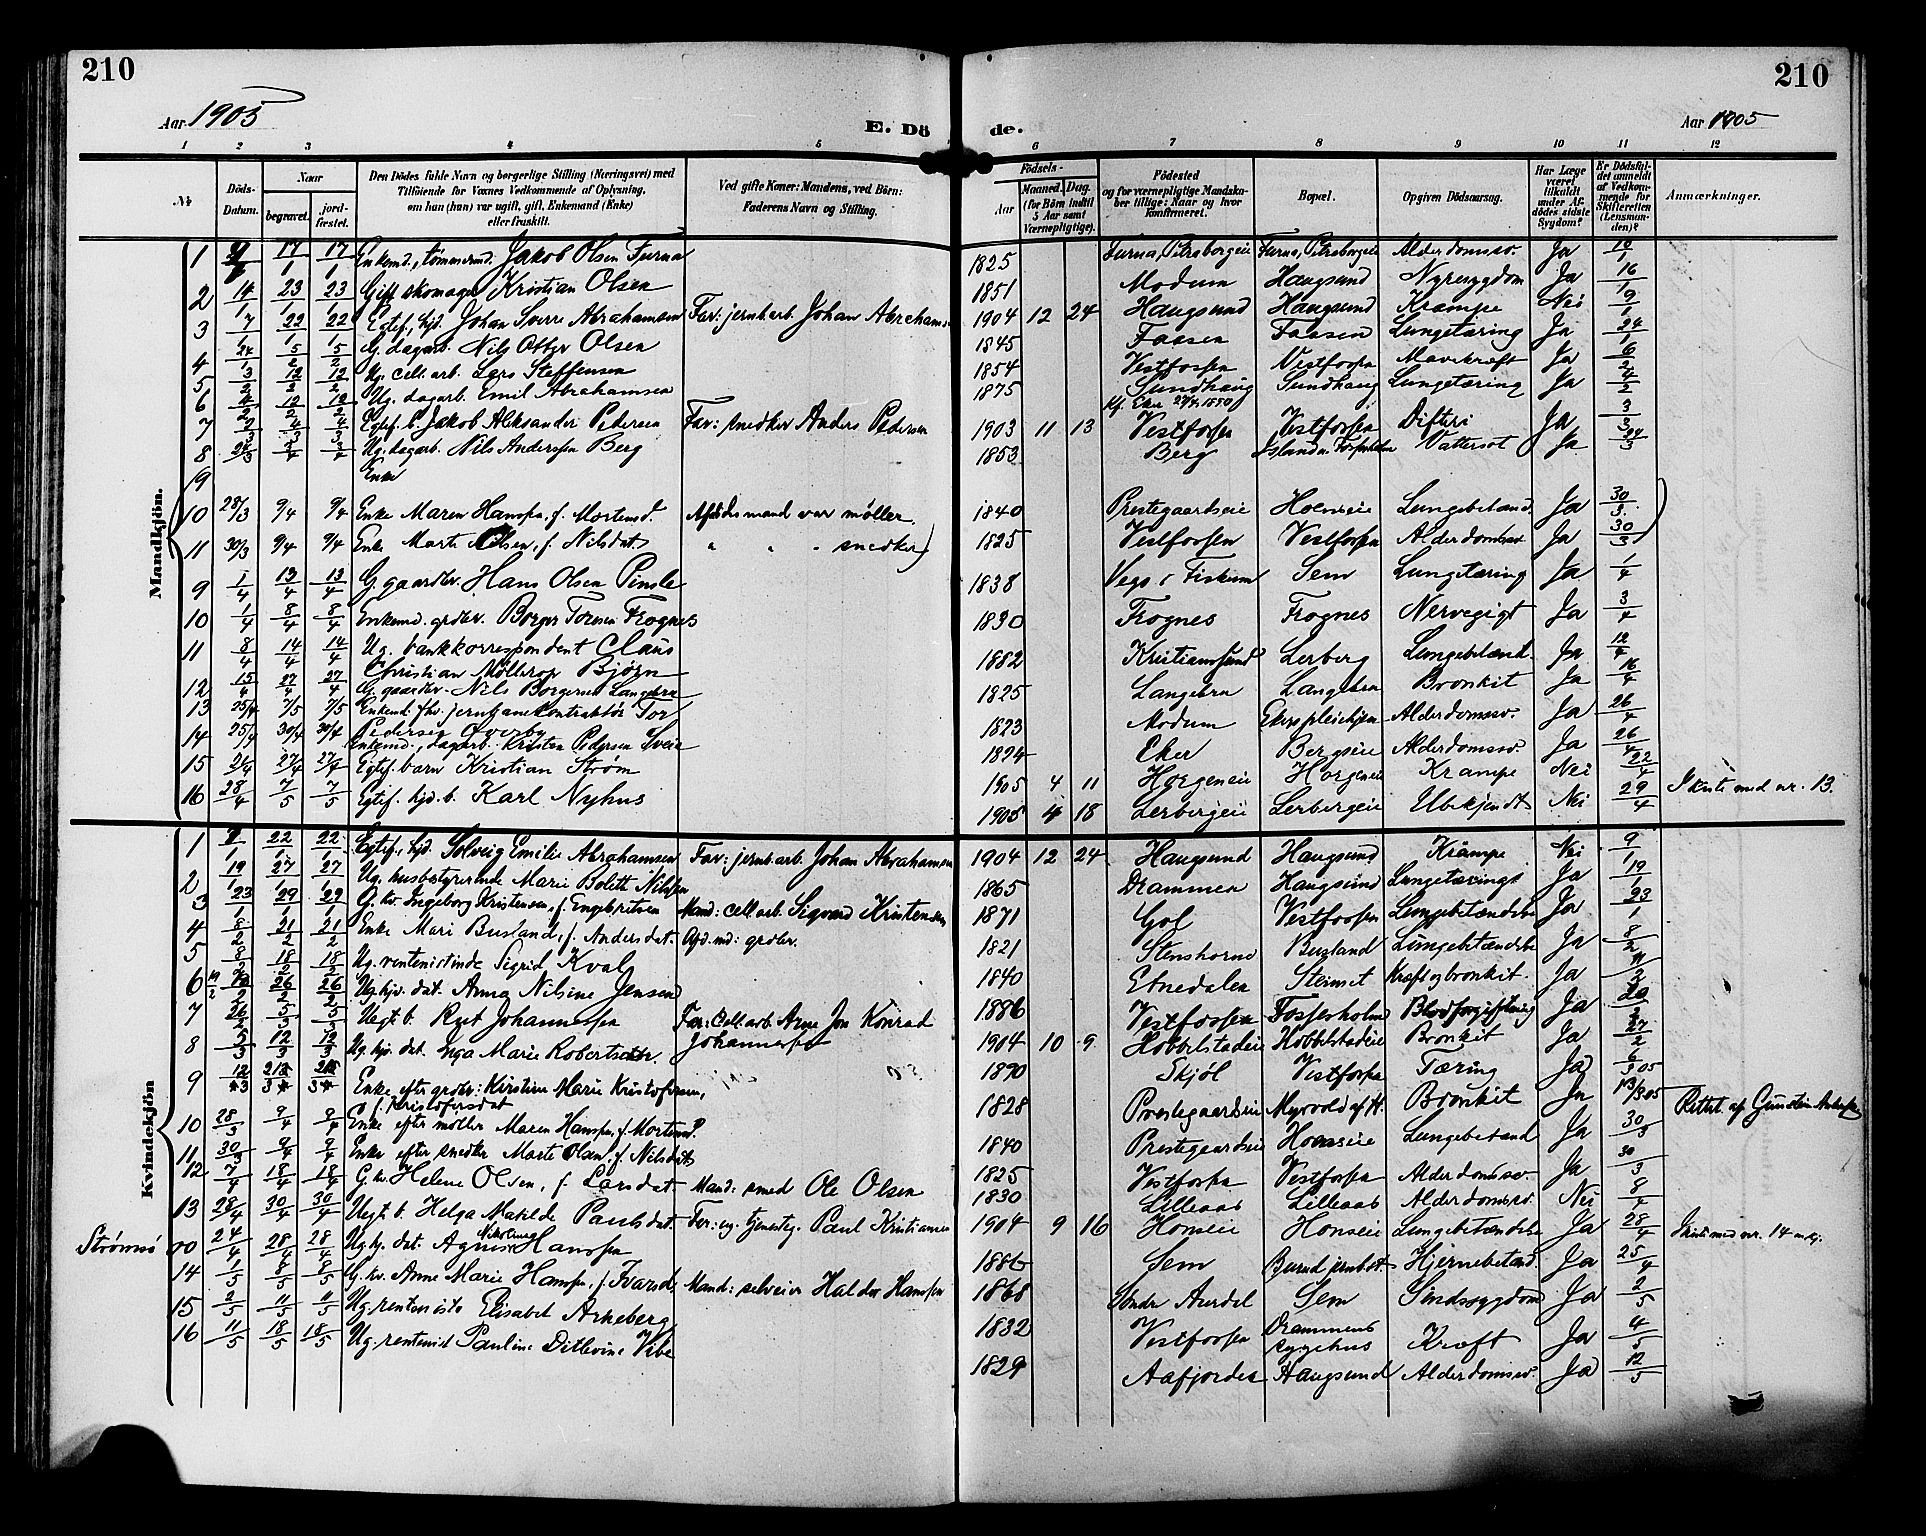 210
210
Aar 1905
E. Dö
de.
Aar 1905
1 2 3 4 5 6 7 8 9 10 11 12
№
Döds-Datum.
Naar
begravet.
jord-fæstet.
Den Dödes fulde Navn og borgerlige Stilling (Næringsvei) med
Tilföiende for Voxnes Vedkommende af Oplysning,
om han (hun) var ugift, gift, Enkemand (Enke)
eller fraskilt.
Ved gifte Koner: Mandens, ved Börn:
Faderens Navn og Stilling.
Födsels-
Aar
Maaned. Dag.
(for Börn indtil
5 Aar samt
Værnepligtige).
Födested
og for værnepligtige Mandska-
ber tillige: Naar og hvor
konfirmeret.
Bopæl.
Opgiven Dödsaarsag.
Har Læge
været
tilkaldt
under Af-
dödes sidste
Sygdom?
Er Dödsfal-
det anmeldt
af Vedkom-
mende for
Skifteretten
(Lensman-
den)?
Anmærkninger.
Mandkjön.
1 17/1 17/1 Enkemd., tømmermd. Jakob Olsen Furua 1825 Furua, Petersborgeie Furua, Petersborgeie Alderdomssv. Ja
2 14/1 23/1 23/1 Gift skomager Kristian Olsen 1851 Modum Haugsund Nyresygdom Ja 16/1
3 7/1 22/1 22/1 Egtef., hjd. Johan Sverre Abrahamsen Far: jernb.arb. Johan Abrahams. 1904 12 24 Haugsund Haugsund Krampe Nei 9/1
4 24/1 5/2 5/2 G. dagarb. Nils Olsen 1845 Faasen Faasen Lungetæring Ja 24/1
5 3/2 12/2 12/2 Ug. cell.arb. Lars Steffensen 1854 Vestfossen Vestfossen Mavekræft Ja 6/2
6 4/2 12/2 12/2 Ug. dagarb. Emil Abrahamsen 1875 Sundhaug Sundhaug Lungetæring Ja 4/2
Kf. Eker
7 2/3 4/3 4/3 Egtef. b. Jakob Aleksander Pedersen Far: snedker Anders Pedersen 1903 11 13 Vestfossen Vestfossen Difteri Ja 3/3
8 Ug. dagarb. Nils Anderssen Berg 1853 Berg Vattersot Ja
9 Enke
10 28/3 9/4 9/4 Enke Maren Hanssen, f. Mortensd. Afdødes mand var møller. 1840 Prestegaardseie Hoenseie Lungebetænd. Ja 30/3
11 30/3 9/4 9/4 Enke Marte Olsen, f. Nilsdat. " " " snedker) 1825 Vestfossen Vestfossen Alderdomssv. Ja 30/3
9 1/4 13/4 13/4 G. gaardbr. Hans Olsen Pinsle 1838 Vego i Fiskum Sem Lungetæring Ja 1/4
10 1/4 8/4 8/4 Enkemd. grdbr. Borger Toresen Frognes 1830 Frognes Frognes Nervegigt Ja 3/4
11 8/4 14/4 14/4 Ug. bankkorrespondent Claus
Christian Møllerop Bjørn 1882 Kristiansund Lerberg Lungebetænd. Ja 12/4
12 15/4 27/4 27/4 G. gaardbr. Nils Borgersen Langebru 1825 Langebru Langebru Bronkit Ja 16/4
13 25/4 7/5 7/5 Enkemd. fhv. jernbanekontraktør Tor
Pedersen Overby 1823 Modum Ekers pleiehjem Alderdomssv. Ja 26/4
14 25/4 30/4 30/4 Enkemd., dagarb. Kristen Pedersen Sveia 1824 Eker Bergseie Alderdomssv. Ja 26/4
15 21/4 27/4 27/4 Egtef. barn Kristian Strøm 1905 4 11 Horgeneie Horgeneie Krampe Nei 22/4
16 28/4 7/5 7/5 Egtef. hjd. b. Karl Nyhus 1905 4 18 Lerbergeie Lerbergeie Ubekjendt Nei 29/4 I kiste med nr. 13.
Kvindekjön
1 22/1 22/1 Egtef., hjd. Solveig Emilie Abrahamsen Far: jernb.arb. Johan Abrahamsen 1904 12 24 Haugsund Haugsund Krampe Nei 9/1
2 19/1 27/1 27/1 Ug. husbestyrerinde Marie Bolette Nilssen 1865 Drammen Haugsund Lungetæring Ja 19/1
3 23/1 29/1 29/1 G. kv. Ingeborg Kristensen, f. Engebritsen Mand: cell.arb. Sigvard Kristensen 1871 Gol Vestfossen Lungebetændelse Ja 23/1
4 8/2 21/2 21/2 Enke Mari Busland, f. Andersdat. Afd. md: grdbr. 1821 Stenshorne Busland Lungebetændelse Ja 8/2
5 8/2 18/2 18/2 Ug. rentenistinde Sigrid Kval 1840 Etnedalen Steinset Kræft og bronkit. Ja 11/2
6 26/2 26/2 Ug. hjv. dat. Anna Nilsine Jensen 1886 Vestfossen Fosserholm Blodforgiftning Ja 20/2
7 26/2 5/3 5/3 Uegt. b. Ryet Johannessen Far: Cell.arb. Arne Jon Konrad
Johannessen 1904 10 9 Hobbelstadeie Hobbelstadeie Bronkit Ja 27/2
8 5/3 12/3 12/3 Ug. hjv. dat. Inga Marie Robertsdtr. 1890 Skjøl Vestfossen Tæring Ja 6/3 05
9 12/3 Enke efter grdbr: Kirstine Marie Kristofersen,
f. Kristofersdat 1828 Prestegaardseie Myrvold af H. Bronkit Ja 13/3 05 Rettet af
10 28/3 9/4 9/4 Enke efter møller Maren Hanssen, f. Mortensd. 1840 Prestegaardseie Hoenseie Lungebetænd Ja 30/3
11 30/3 9/4 9/4 Enke efter snedker Marte Olsen, f. Nilsdat 1825 Vestfossen Vestfossen Alderdomssv. Ja 30/3
12 7/4 18/4 18/4 G. kv. Helene Olsen, f. Larsdat. Mand: smed Ole Olsen 1830 Lilleaas Lilleaas Alderdomssv. Nei 8/4
13 28/4 30/4 30/4 Uegt. b. Helga Matilde Paulsdat. Far: ug. tjenesteg. Paul Kristiansen 1904 9 16 Honseie Honseie Lungebetændelse Ja 28/4 I kiste med nr. 14 mkj.
Strømsø 00 24/4 28/4 28/4 Ug. hj. dat. Agnes Nikoline Hanssen 1886 Sem Hjernebetænd. Ja 25/4
14 1/5 8/5 8/5 G. kv. Anne Marie Hanssen, f. Ivarsd. Mand: selveier Haldor Hanssen 1868 Søndre Aurdal Sem Sindssygdom Ja 2/5
15 2/5 11/5 11/5 Ug. renteniste Elisabet Arneberg 1832 Vestfossen Drammens
sygehus Kræft Ja 4/5
16 11/5 18/5 18/5 Ug. rentenist Pauline Ditlevine Vibe 1829 Aafjorden Haugsund Alderdomssv. Ja 12/5